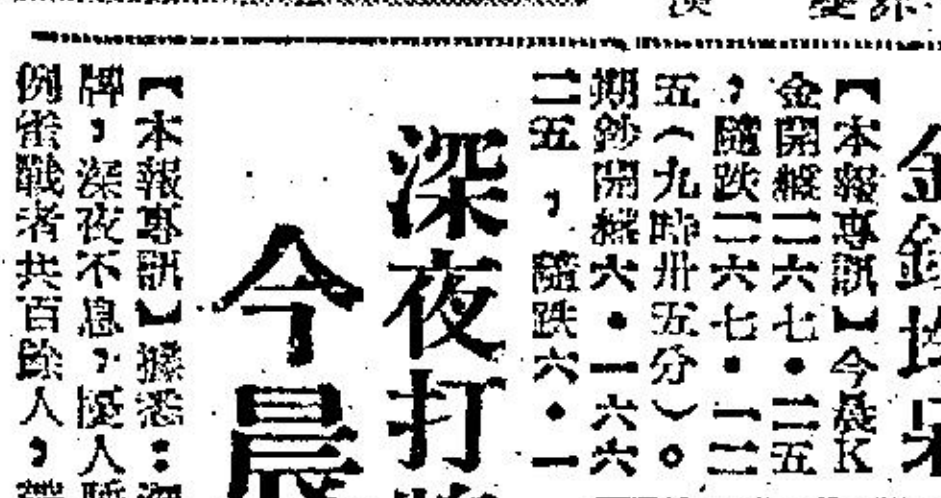 金鈔均呆
【本報專訊】今晨K
金開縱二六七・二五
，隨跌二六七・一二
五（九時卅五分）。
期鈔開縱六・一六六
二五，隨跌六・一
深夜打
今晨
【本報專訊】據悉：
牌，深夜不息，擾人
例雀戰者共百餘人，